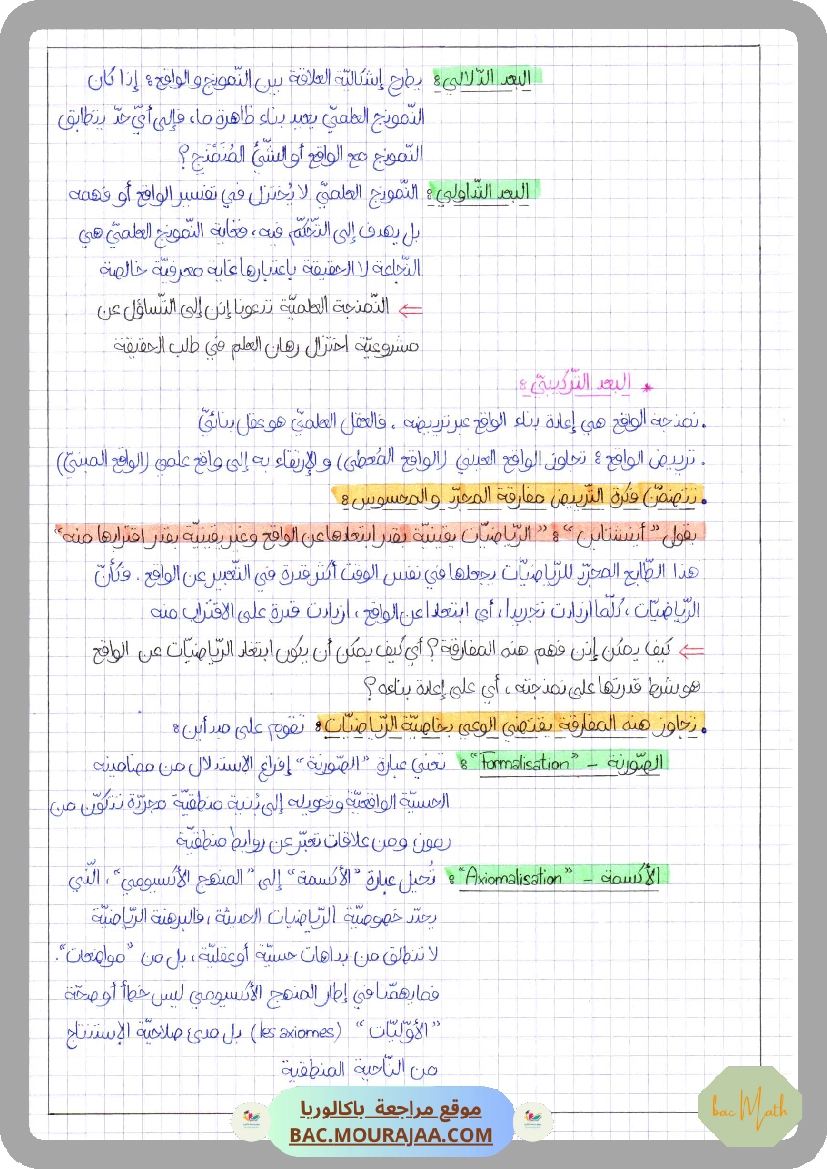 البعد الدّلالي: يطرح إشكاليّة العلاقة بين النّموذج والواقع: إذا كان
النّموذج العلميّ يعيد بناء ظاهرة ما، فإلى أيّ حدّ يتطابق
النّموذج مع الواقع أو الشّيء المُنَمْذَج؟
البعد التّداولي: النّموذج العلميّ لا يُختزل في تفسير الواقع أو فهمه
بل يهدف إلى التّحكّم فيه، فغاية النّموذج العلميّ هي
النّجاعة لا الحقيقة باعتبارها غاية معرفيّة خالصة
⇐ النّمذجة العلميّة تدعونا إذن إلى التّساؤل عن
مشروعيّة اختزال رهان العلم في طلب الحقيقة
* البعد التّركيبيّ:
. نمذجة الواقع هي إعادة بناء الواقع عبر ترييضه، فالعقل العلميّ هو عقل بنائيّ
. ترييض الواقع: تجاوز الواقع العيني (الواقع المُعطى) و الإرتقاء به إلى واقع علمي (الواقع المبنيّ)
. تتضمّن فكرة التّرييض مفارقة المجرّد والمحسوس:
يقول "أينشتاين": "الرّياضيّات يقينيّة بقدر ابتعادها عن الواقع وغير يقينيّة بقدر اقترابها منه"
هذا الطّابع المجرّد للرّياضيّات يجعلها في نفس الوقت أكثر قدرة في التّعبير عن الواقع. فكأنّ
الرّياضيّات، كلّما ازدادت تجريدا، أي ابتعادا عن الواقع، ازدادت قدرة على الاقتراب منه
⇐ كيف يمكن إذن فهم هذه المفارقة؟ أي كيف يمكن أن يكون ابتعاد الرّياضيّات عن الواقع
هو شرط قدرتها على نمذجته، أي على إعادة بناءه؟
. تجاوز هذه المفارقة يقتضي الوعي بخاصيّة الرّياضيّات: تقوم على مبدأين:
الصّورنة - "Formalisation": تعني عبارة "الصّورنة" إفراغ الاستدلال من مضامينه
الحسيّة الواقعيّة وتحويله إلى بُنية منطقيّة مجرّدة تتكوّن من
رموز ومن علاقات تعبّر عن روابط منطقيّة
الأكسمة - "Axiomalisation": تُحيل عبارة "الأكسمة" إلى "المنهج الأكسيومي"، الّذي
يحدّد خصوصيّة الرّياضيات الحديثة، فالبرهنة الرّياضيّة
لا تنطلق من بداهات حسيّة أو عقليّة، بل من "مواضعات".
فما يهمّنا في إطار المنهج الأكسيومي ليس خطأ أو صحّة
"الأوّليّات" (les axiomes) بل مدى صلاحيّة الإستنتاج
من النّاحية المنطقية
موقع مراجعة باكالوريا
BAC.MOURAJAA.COM
bac Math